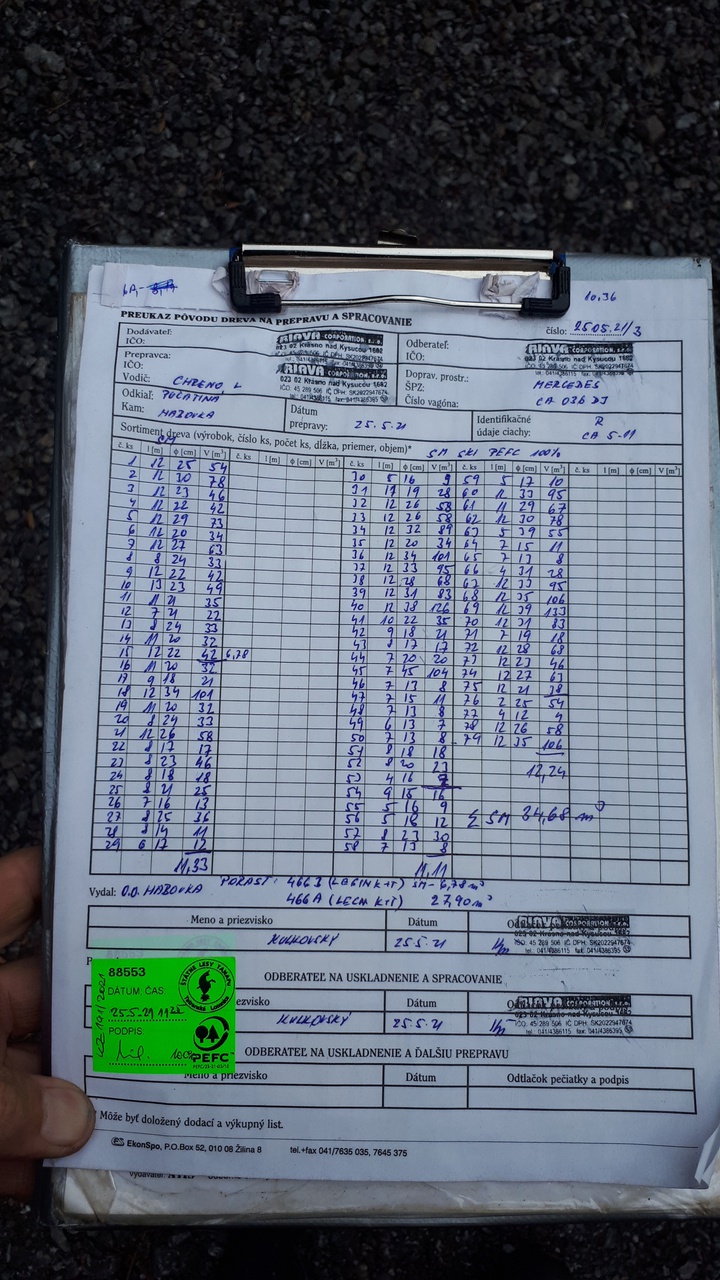 10,36
PREUKAZ PÔVODU DREVA NA PREPRAVU A SPRACOVANIE
číslo: 25.05.21/3
Dodávateľ:
IČO:
RIAVA CORPORATION, s.r.o.
023 02 Krásno nad Kysucou 1682
IČO: 45 289 506 IČ DPH: SK2022947674
Odberateľ:
IČO:
RIAVA CORPORATION, s.r.o.
023 02 Krásno nad Kysucou 1682
IČO: 45 289 506 IČ DPH: SK2022947674
Prepravca:
IČO:
RIAVA CORPORATION, s.r.o.
023 02 Krásno nad Kysucou 1682
IČO: 45 289 506 IČ DPH: SK2022947674
Vodič:
Doprav. prostr.:
ŠPZ: MERCEDES
Číslo vagóna: CA 036 DJ
Odkiaľ: POĽATINA
Kam: HABOVKA
Dátum
prepravy: 25.5.21
Identifikačné
údaje ciachy: R
CA 5-11
Sortiment dreva (výrobok, číslo ks, počet ks, dĺžka, priemer, objem)*
SM SKI PEFC 100%
č. ks l [m] ϕ [cm] V [m³] č. ks l [m] ϕ [cm] V [m³] č. ks l [m] ϕ [cm] V [m³] č. ks l [m] ϕ [cm] V [m³] č. ks l [m] ϕ [cm] V [m³]
1 12 25 54 30 5 16 9 59 5 17 10
2 12 30 78 31 17 19 28 60 12 33 95
3 12 23 46 32 12 26 58 61 11 29 67
4 12 22 42 33 12 26 58 62 12 30 78
5 12 29 73 34 12 32 89 63 5 39 55
6 12 20 34 35 12 20 34 64 7 15 11
7 12 27 63 36 12 34 101 65 7 13 8
8 8 24 33 37 12 33 95 66 4 31 28
9 12 22 42 38 12 28 68 67 12 33 95
10 13 23 49 39 12 31 83 68 12 35 106
11 11 21 35 40 12 38 126 69 12 39 133
12 7 21 22 41 10 22 35 70 12 31 83
13 8 24 33 42 9 18 21 71 7 19 18
14 11 20 32 43 8 17 17 72 12 28 68
15 12 22 42 6,78 44 7 20 20 73 12 23 46
16 11 20 32 45 7 45 104 74 12 27 63
17 9 18 21 46 7 13 8 75 12 21 38
18 12 34 101 47 7 15 11 76 2 25 54
19 11 20 32 48 7 13 8 77 4 12 4
20 8 24 33 49 6 13 7 78 12 26 58
21 12 26 58 50 7 13 8 79 12 35 106
22 8 17 17 51 8 18 18
23 8 23 46 52 8 20 23 12,24
24 8 18 18 53 4 16 7
25 8 21 25 54 9 15 16
26 7 16 13 55 5 16 9
27 8 25 36 56 5 18 12 Σ SM 34,68 m³
28 8 14 11 57 8 23 30
29 6 17 12 58 7 13 8
11,33 11,11
Vydal: O.O. HABOVKA PORAST: 466 (LEGINK+T) SM - 6,78 m³
466A (LECH K+T) 27,90 m³
Meno a priezvisko Dátum
KULKOVSKÝ 25.5.21
RIAVA CORPORATION, s.r.o.
023 02 Krásno nad Kysucou 1682
IČO: 45 289 506 IČ DPH: SK2022947674
ODBERATEĽ NA USKLADNENIE A SPRACOVANIE
Dátum
KULKOVSKÝ 25.5.21
RIAVA CORPORATION, s.r.o.
023 02 Krásno nad Kysucou 1682
IČO: 45 289 506 IČ DPH: SK2022947674
88553
DÁTUM, ČAS:
25.5.21 11
PODPIS:
100%
ŠTÁTNE LESY TANAPU
TATRANSKÁ LOMNICA
PEFC
ODBERATEĽ NA USKLADNENIE A ĎALŠIU PREPRAVU
Meno a priezvisko Dátum Odtlačok pečiatky a podpis
* Môže byť doložený dodací a výkupný list.
EkonSpo, P.O.Box 52, 010 08 Žilina 8 tel.+fax 041/7635 035, 7645 375